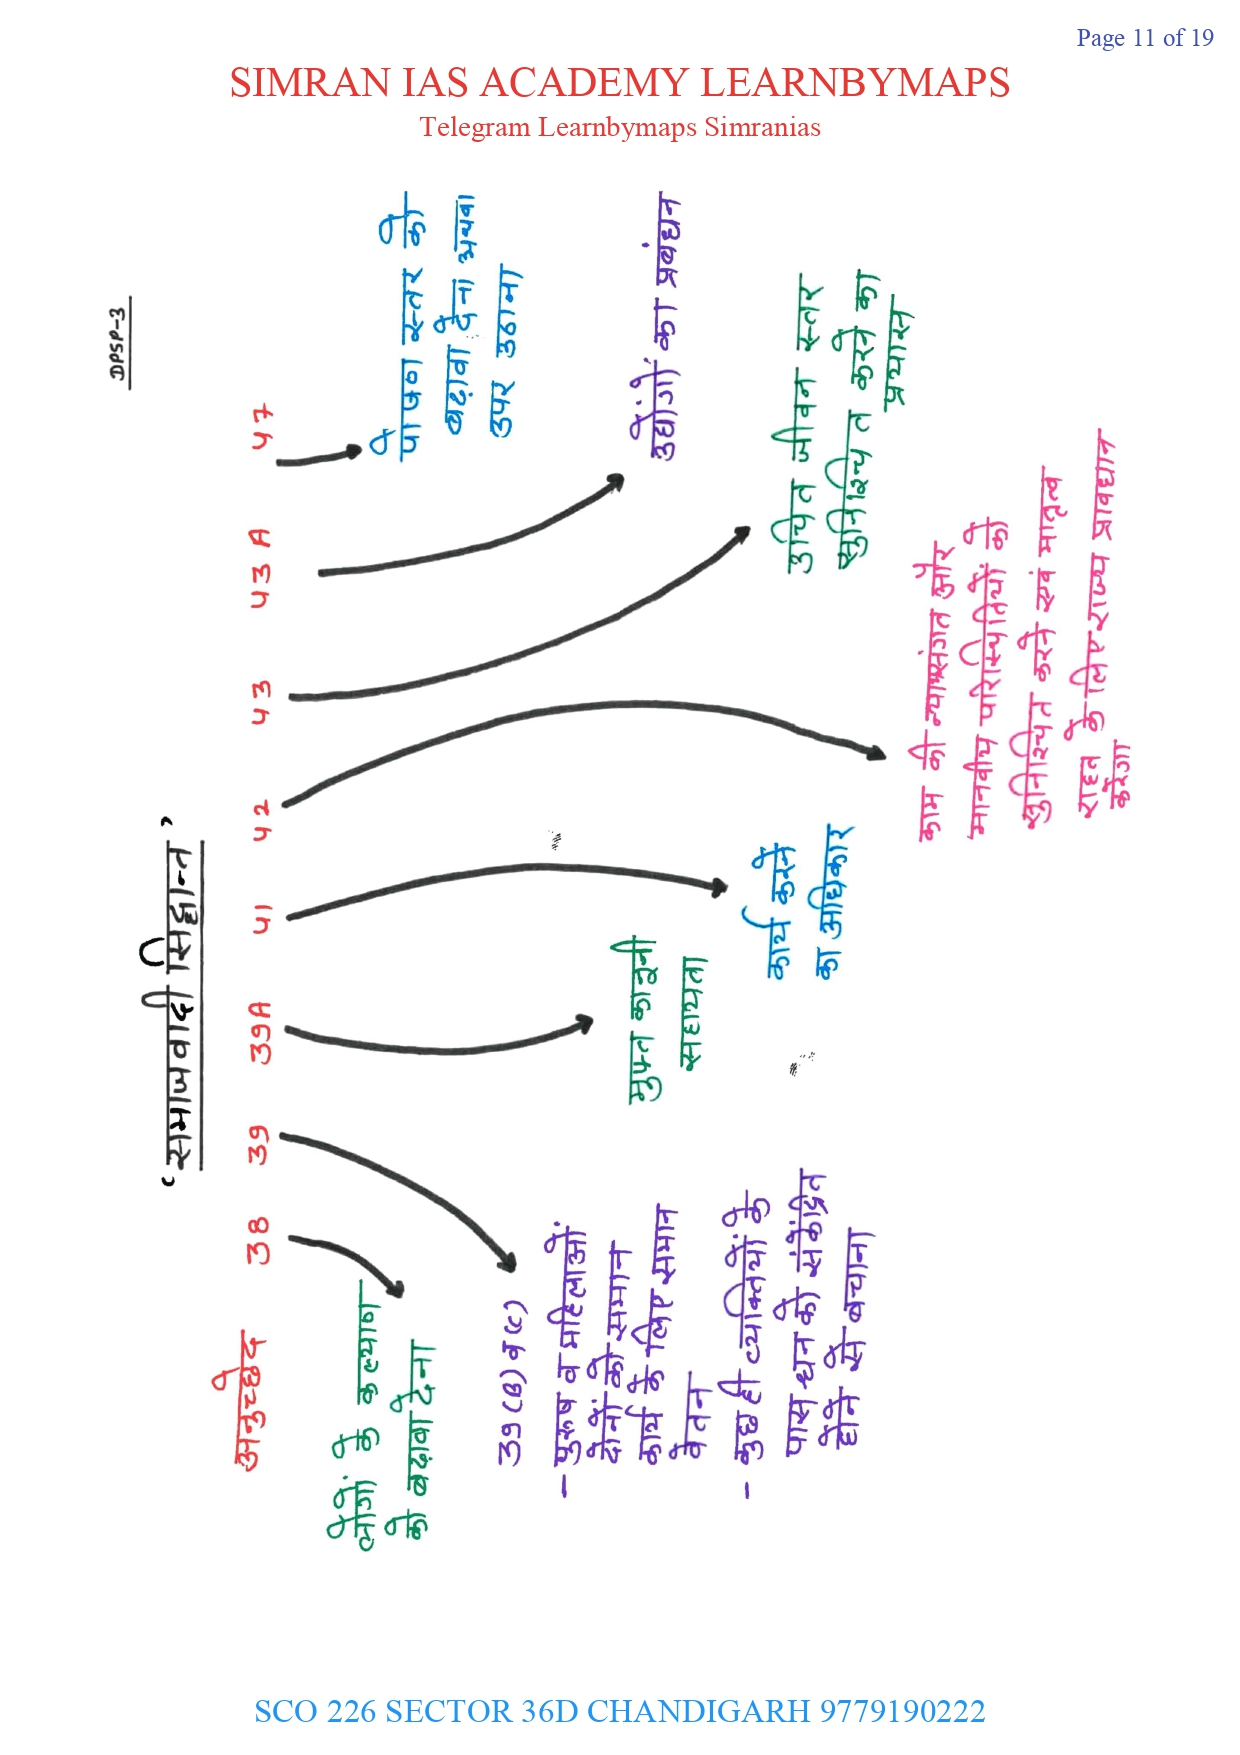 Page 11 of 19
SIMRAN IAS ACADEMY LEARNBYMAPS
Telegram Learnbymaps Simranias
DPSP-3
‘समाजवादी सिद्धान्त’
अनुच्छेद 38 39 39A 41 42 43 43 A 47
लोगों के कल्याण
को बढ़ावा देना
39 (B) व (C)
- पुरूष व महिलाओं
दोनों को समान
कार्य के लिए समान
वेतन
- कुछ ही व्यक्तियों के
पास धन को संकेंद्रित
होने से बचाना
मुफ्त कानूनी
सहायता
कार्य करने
का अधिकार
काम की न्यायसंगत और
मानवीय परिस्थितियों को
सुनिश्चित करने एवं मातृत्व
राहत के लिए राज्य प्रावधान
करेगा
उचित जीवन स्तर
सुनिश्चित करने का
प्रयास
उद्योगों का प्रबंधन
पोषण स्तर को
बढ़ावा देना अथवा
उपर उठाना
SCO 226 SECTOR 36D CHANDIGARH 9779190222